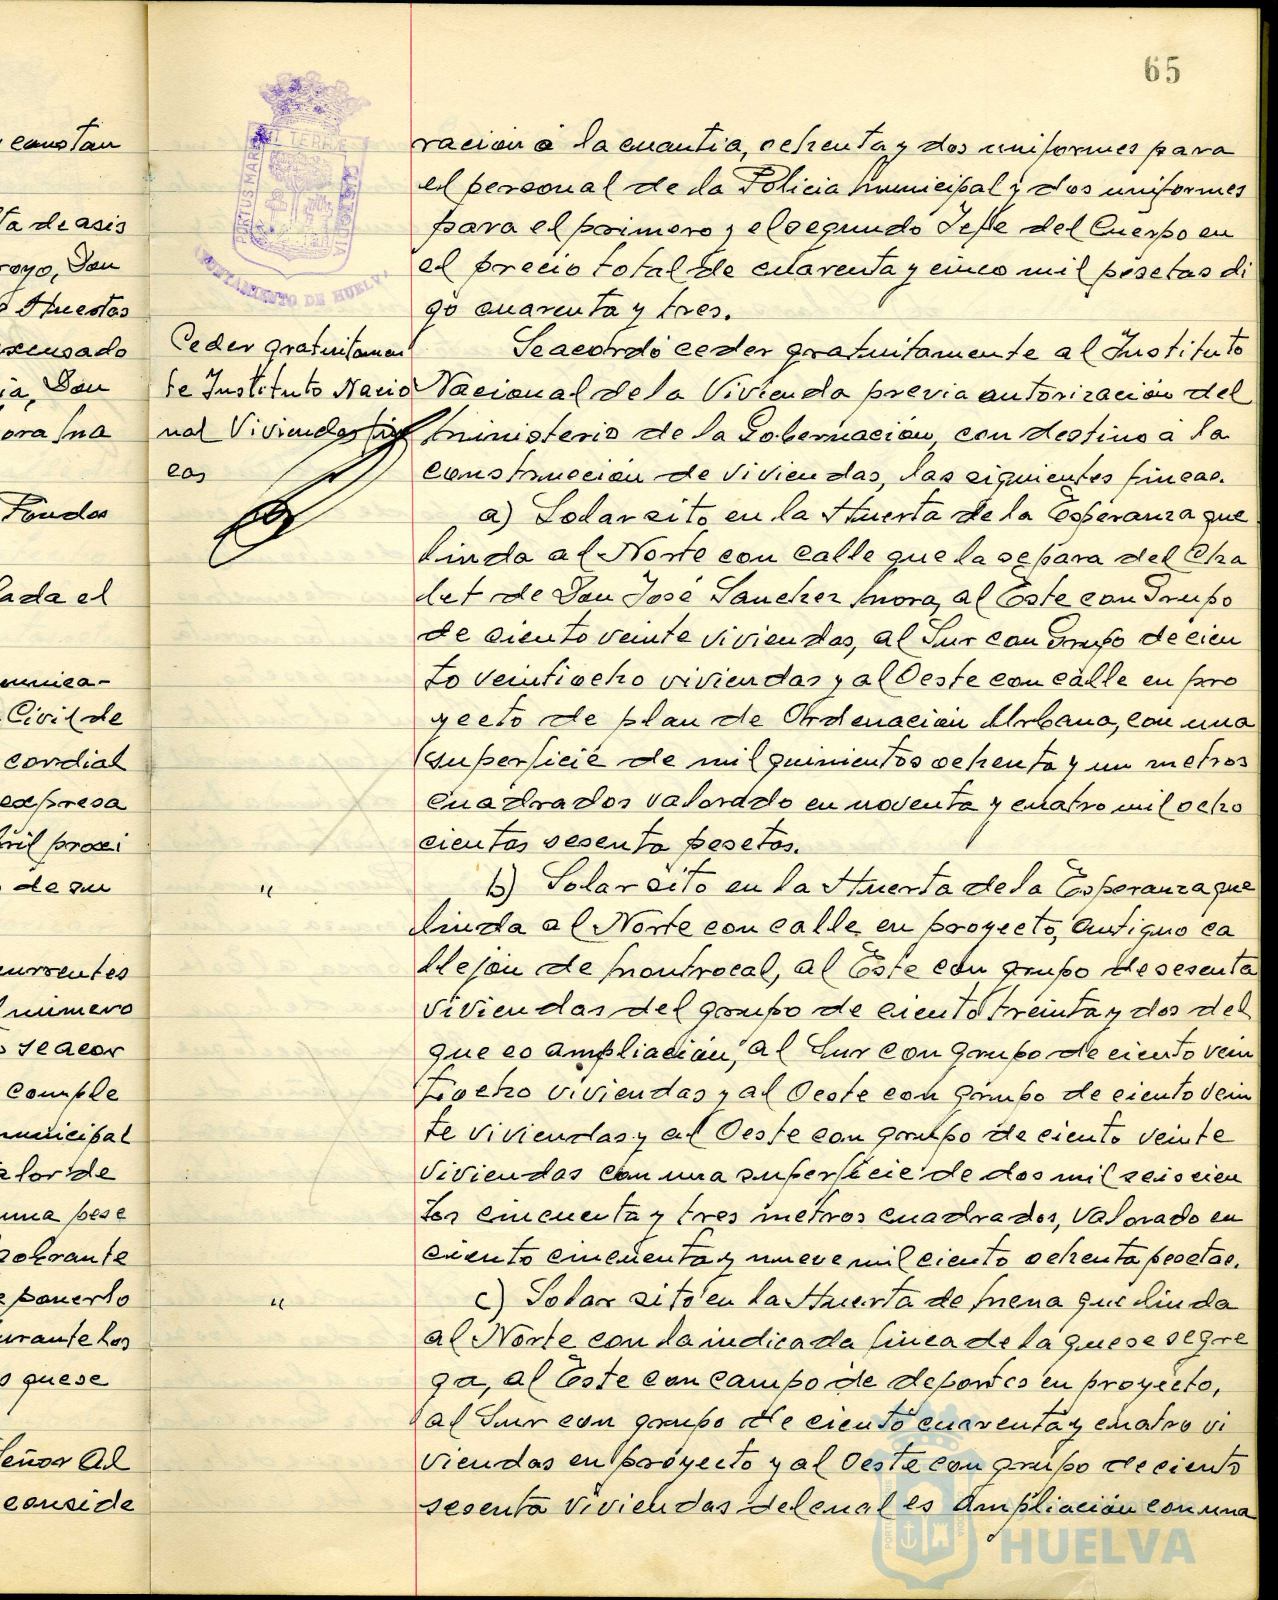 65
constan
ta de asis
royo, Don
Huestas
excusado
ia, Don
ora ma
Fondos
lada el
munica-
Civil de
cordial
expresa
bril proxi
de su
currentes
número
se acor
comple
municipal
alor de
una pese
sobrante
e ponerlo
urante los
s quese
Señor Al
conside
PORTUS MARIS ET TERRÆ CUSTODIA
AYUNTAMIENTO DE HUELVA
Ceder gratuitamen
te Instituto Nacio
nal Viviendas fin
cas
"
"
ración a la cuantia, ochenta y dos uniformes para
el personal de la Policia Municipal y dos uniformes
para el primero y el segundo Jefe del Cuerpo en
el precio total de cuarenta y cinco mil pesetas di
go cuarenta y tres.
Se acordó ceder gratuitamente al Instituto
Nacional de la Vivienda previa autorización del
Ministerio de la Gobernación, con destino a la
construcción de viviendas, las siguientes fincas.
a) Solar sito en la Huerta de la Esperanza que
linda al Norte con calle que la separa del Cha
let de Don José Sanchez Mora, al Este con Grupo
de ciento veinte viviendas, al Sur con Grupo de cien
to veintiocho viviendas y al Oeste con calle en pro
yecto de plan de Ordenación Urbana, con una
superficie de mil quinientos ochenta y un metros
cuadrados valorado en noventa y cuatro mil ocho
cientas sesenta pesetas.
b) Solar sito en la Huerta de la Esperanza que
linda al Norte con calle en proyecto, antiguo ca
llejón de Montrocal, al Este con grupo de sesenta
viviendas del grupo de ciento treinta y dos del
que es ampliación, al Sur con grupo de ciento vein
tiocho viviendas y al Oeste con grupo de ciento vein
te viviendas y al Oeste con grupo de ciento veinte
viviendas con una superficie de dos mil seiscien
tos cincuenta y tres metros cuadrados, valorado en
ciento cincuenta y nueve mil ciento ochenta pesetas.
c) Solar sito en la Huerta de Mena que linda
al Norte con la indicada finca de la que se segre
ga, al Este con campo de deportes en proyecto,
al Sur con grupo de ciento cuarenta y cuatro vi
viendas en proyecto y al Oeste con grupo de ciento
sesenta viviendas del cual es ampliación con una
HUELVA